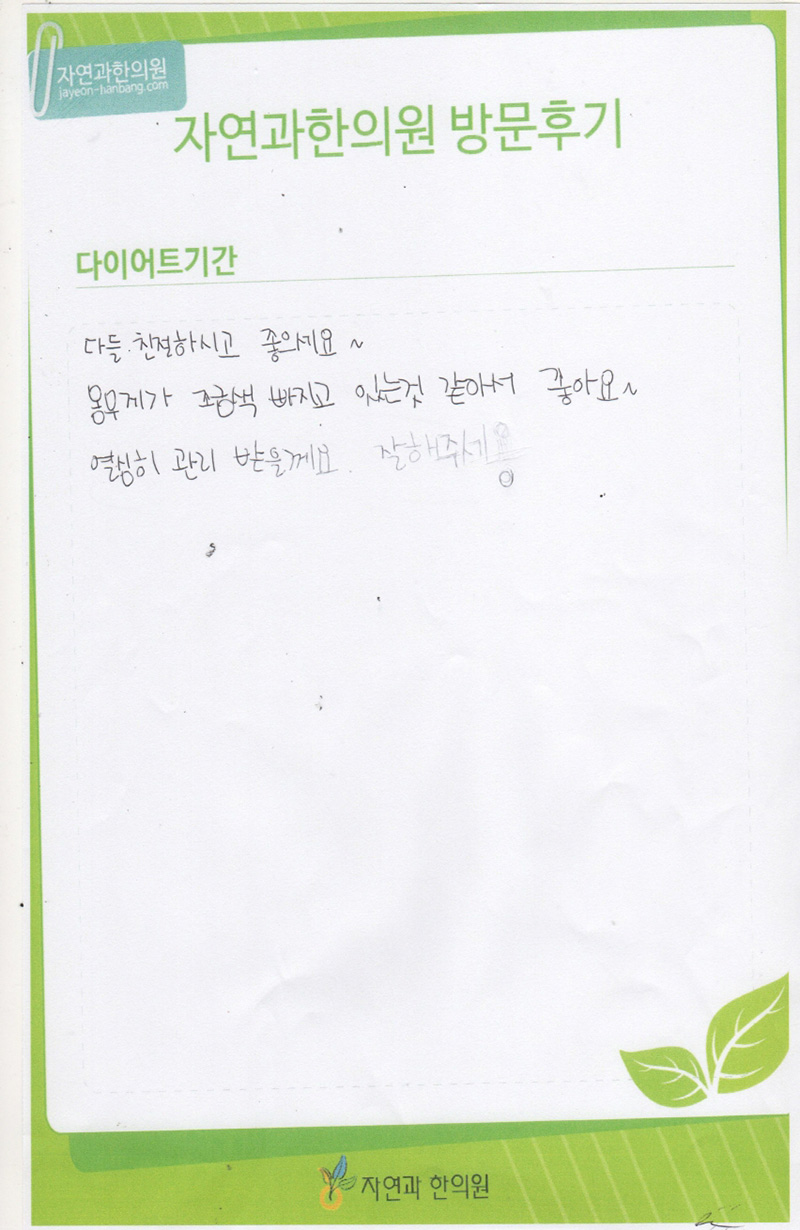 자연과한의원
jayeon-hanbang.com
자연과한의원 방문후기
다이어트기간
다들 친절하시고 좋으세요~
몸무게가 조금색 빠지고 있는것 같아서 좋아요~
열심히 관리 받을께요. 잘해주세용
자연과 한의원